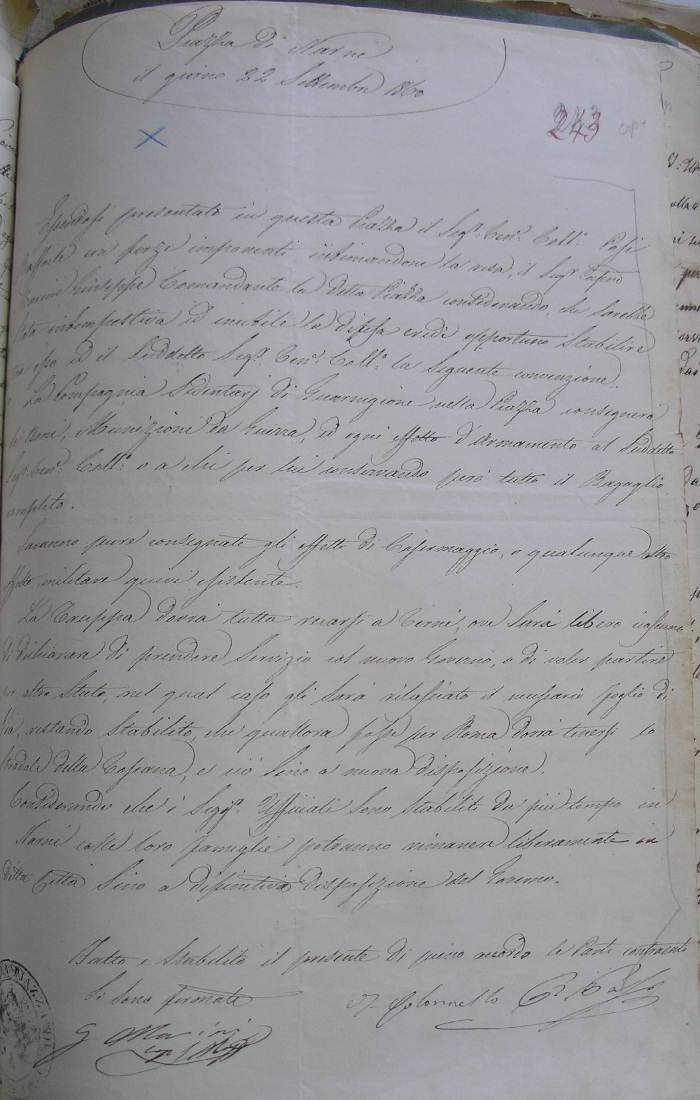 Piazza di Narni
il giorno 22 Settembre 1860
243
Essendosi presentato in questa Piazza il Sigr. Tene. Coll.o Pasi
con forze imponenti intimandone la resa, il Sigr.
Giuseppe Comandante la detta Piazza considerando, che sarebbe
intempestiva ed inutile la difesa credè opportuno stabilire
esso ed il suddetto Sigr. Tene. Coll.o la seguente convenzione.
La Compagnia Sidentarj di Guarnigione nella Piazza consegnerà
le Armi, Munizioni da Guerra, ed ogni effetto d'Armamento al suddetto
Sigr. Tene. Coll.o o a chi per lui conservando però tutto il Bagaglio
completo.
Saranno pure consegnati gli effetti di Casermaggio, o qualunque altro
effetto militare quivi esistente.
La Truppa dovrà tutta recarsi a Terni, ove sarà libero
di dichiarare di prendere servizio col nuovo Governo, o di voler partire
per altro Stato, nel qual caso gli sarà rilasciato il necessario foglio di
Via, restando stabilito, che quallora fosse per Roma dovrà tenersi lo
stradale della Toscana, e ciò sino a nuova disposizione.
Considerando che i Sigri. Uffiziali sono stabiliti da più tempo in
Narni colle loro famiglie potranno rimanere liberamente in
detta Città sino a difinitiva disposizione del Governo.
Fatto e stabilito il presente di pieno accordo le Parti contraenti
si sono firmate
Colonnello